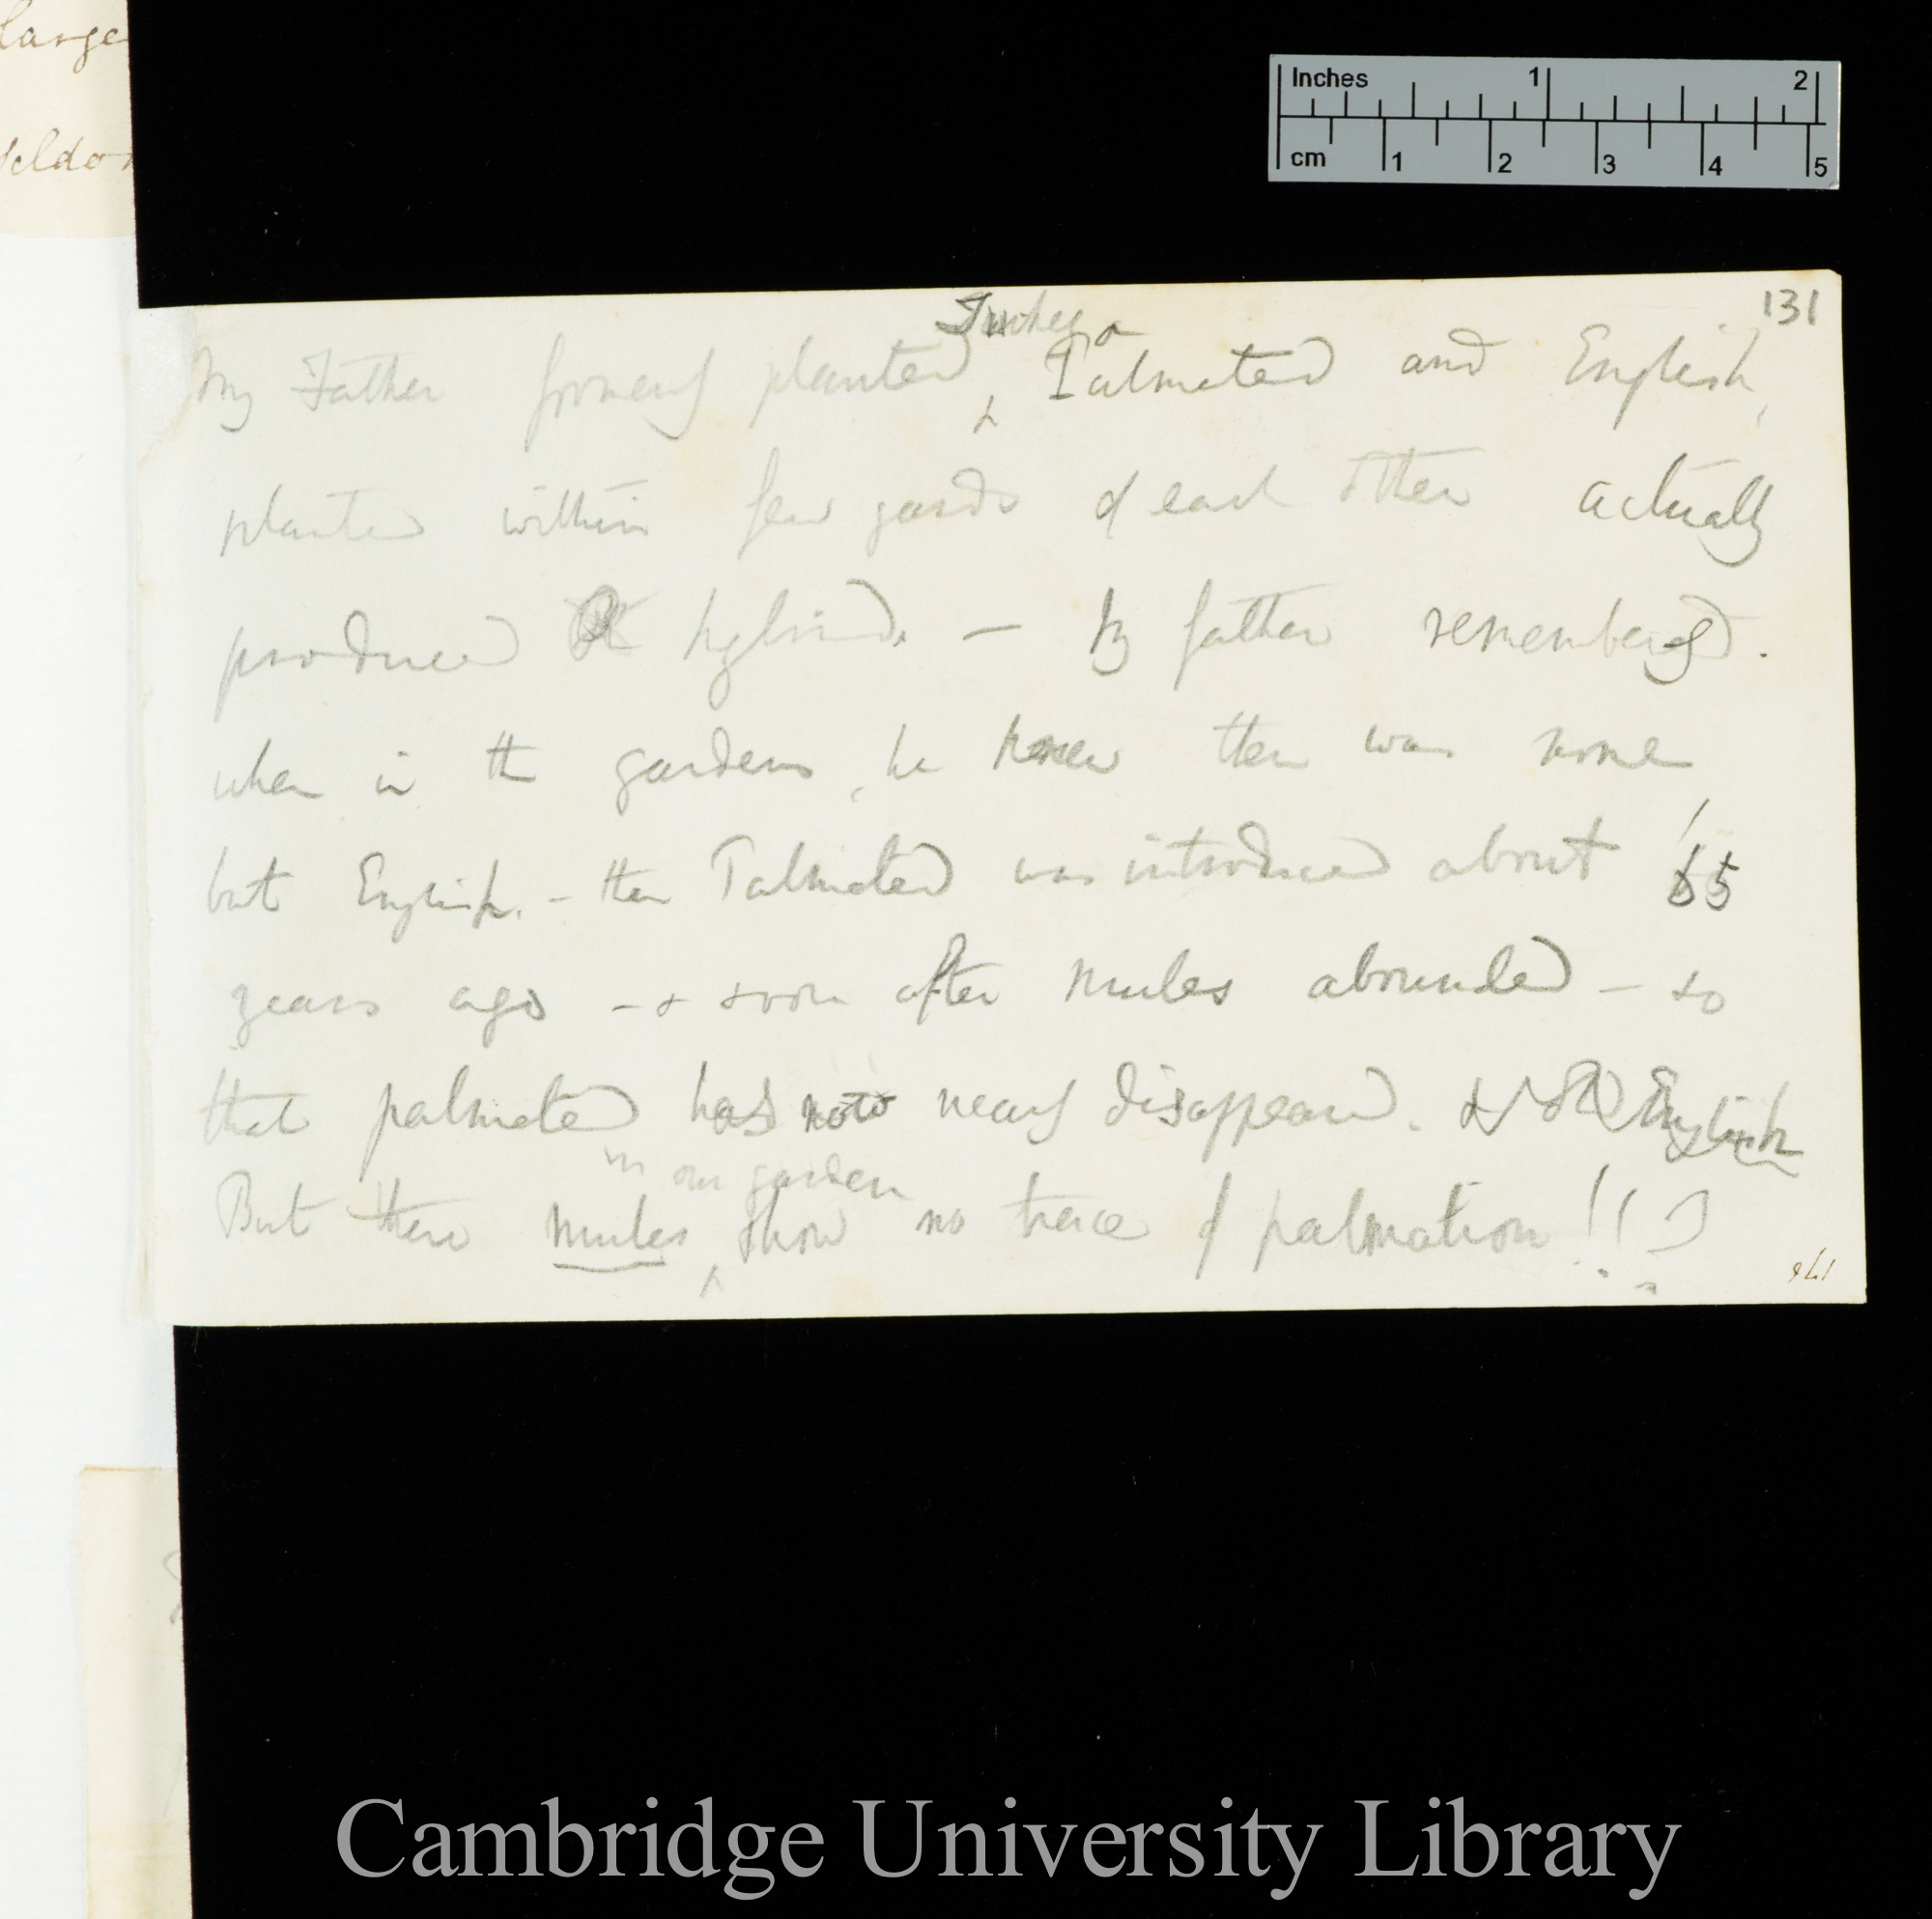 large
seldom
Inches 1 2
cm 1 2 3 4 5
131
Turkey or
My Father formerly planted Palmated and English,
planted within few yards of each other actually
produced hybrid. — My father remembers.
when in the gardens, he knew there was none
but English. – then Palmated was introduced about 15
years ago – & soon after mules abounded – so
that palmated has now nearly disappeared. & old English
in our garden
But these mules show no trace of palmation!!
Cambridge University Library